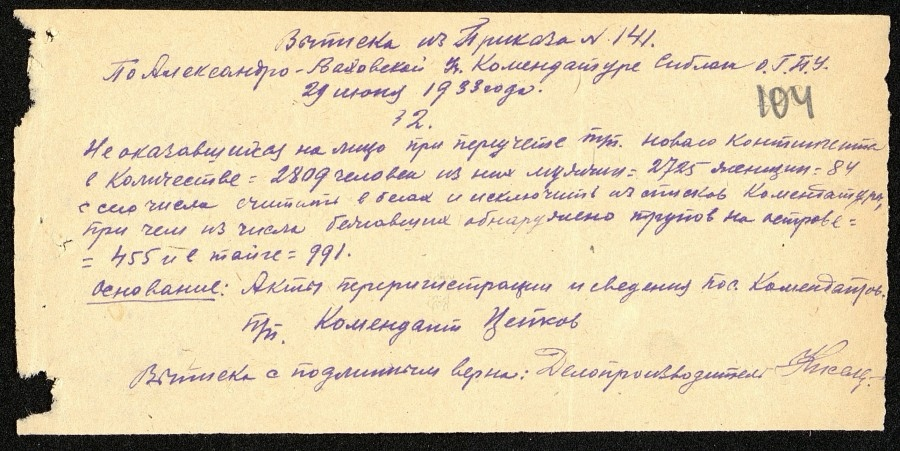 Выписка из Приказа №141.
По Александро-Ваховской Уч. Комендатуре Сиблаг О.Г.П.У.
29 июня 1933 года.
104
§ 2.
Не оказавшихся на лицо при переучете т/п. нового контингента
в Количестве = 2809 человек из них мужчин = 2725 женщин = 84
с сего числа считать в бегах и исключить из списков Коментатуры,
при чем из числа бежавших обнаружено трупов на острове =
= 455 и в тайге = 991.
Основание: Акты перригистрации и сведения пос. Комендатров.
п/п. Комендант Цепков
Выписка с подлинным верна: Делопроизводитель